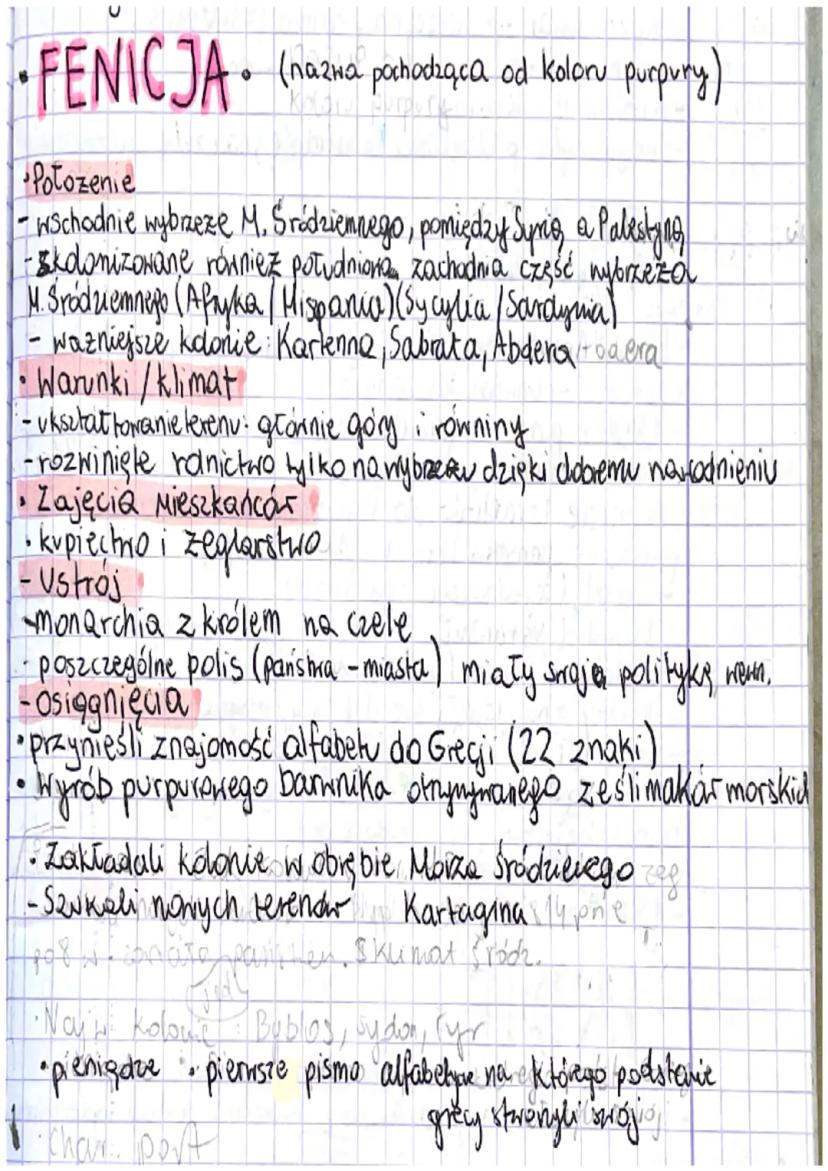 • FENICJA • (nazwa pochodząca od koloru purpury)
• Położenie
- wschodnie wybrzeże M. Śródziemnego, pomiędzy Syrią a Palestyną
- skolonizowane również południowa zachodnia część wybrzeża
M. Śródziemnego (Afryka / Hispania) (Sycylia / Sardynia)
- ważniejsze kolonie: Kartenna, Sabrata, Abdera
• Warunki / klimat
- ukształtowanie terenu: głównie góry i równiny
- rozwinięte rolnictwo tylko na wybrzeżu dzięki dobremu nawodnieniu
• Zajęcia Mieszkańców
• kupiectwo i żeglarstwo
- Ustrój
- monarchia z królem na czele
- poszczególne polis (państwa - miasta) miały swoją politykę wewn.
- osiągnięcia
• przynieśli znajomość alfabetu do Grecji (22 znaki)
• Wyrób purpurowego barwnika otrzymywanego ze ślimaków morskich
• Zakładali kolonie w obrębie Morza Śródziemego
- Szukali nowych terenów Kartagina 814 pne
klimat śródz.
• Najw. kolonie: Byblos, Sydon, Tyr
• pieniądze • pierwsze pismo alfabetyczne na którego podstawie
grecy stworzyli swój